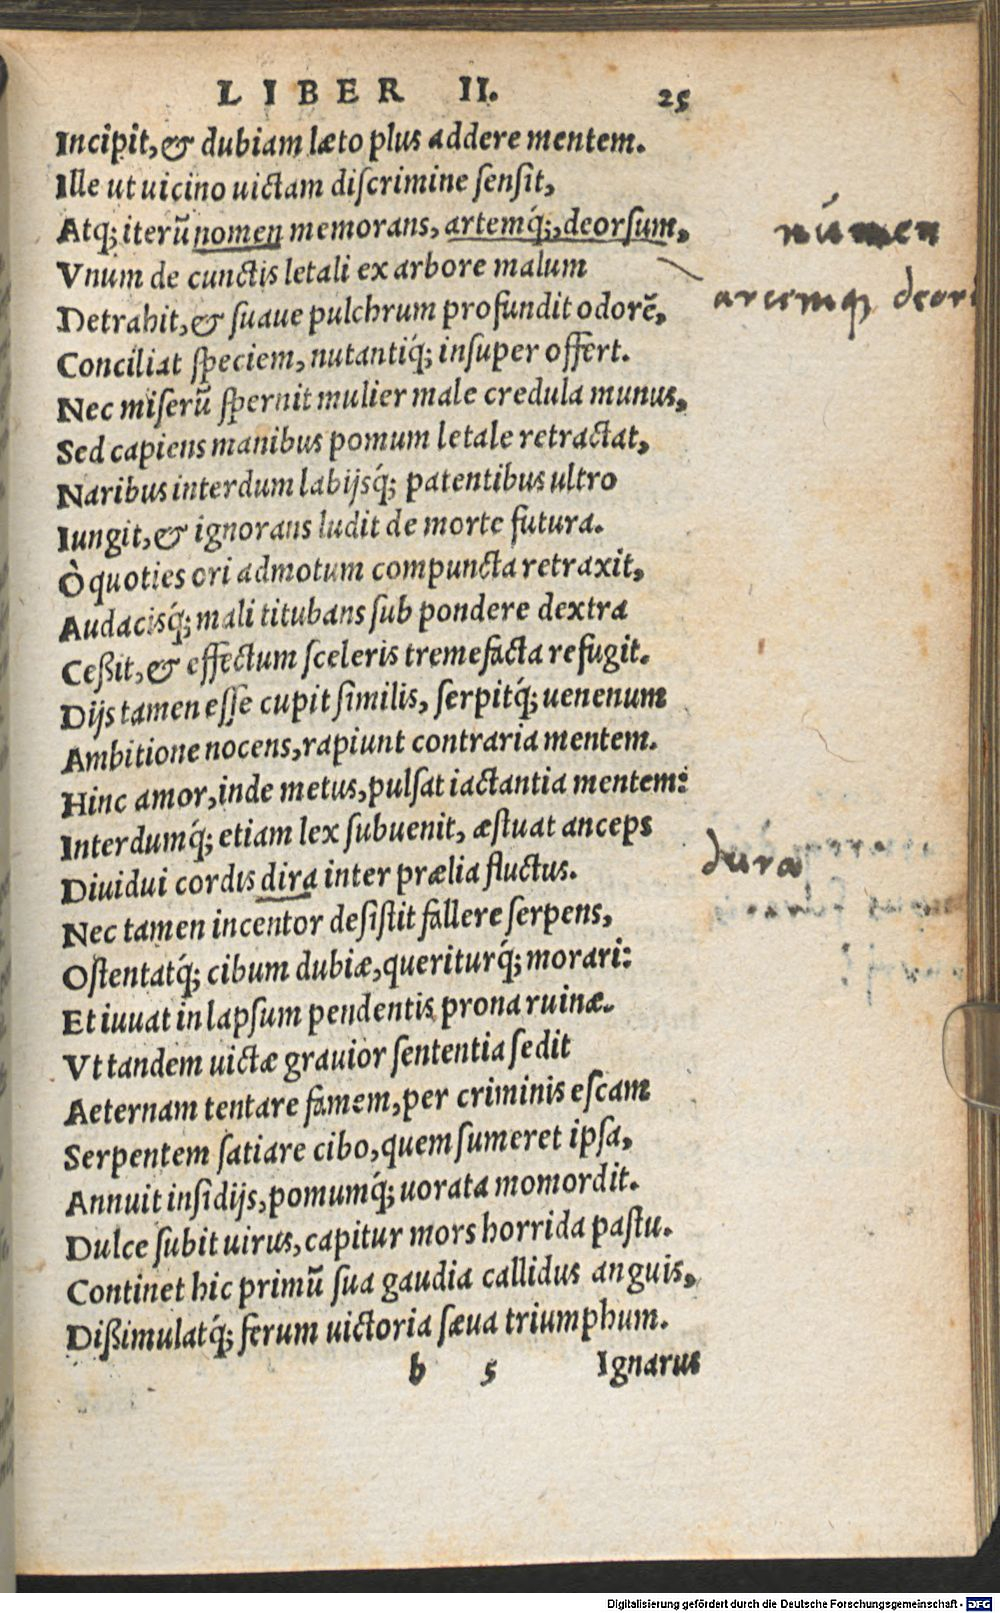 LIBER II. 25
Incipit, & dubiam læto plus addere mentem.
Ille ut uicino uictam discrimine sensit,
Atq; iterũ nomen memorans, artemq́;, deorsum,
númen
Vnum de cunctis letali ex arbore malum
arcemq
Detrahit, & suaue pulchrum profundit odorẽ,
Conciliat speciem, nutantiq́; insuper offert.
Nec miserũ spernit mulier male credula munus,
Sed capiens manibus pomum letale retractat,
Naribus interdum labijsq́; patentibus ultro
Iungit, & ignorans ludit de morte futura.
Ò quoties ori admotum compuncta retraxit,
Audacisq́; mali titubans sub pondere dextra
Ceßit, & effectum sceleris tremefacta refugit.
Dijs tamen esse cupit similis, serpitq́; uenenum
Ambitione nocens, rapiunt contraria mentem.
Hinc amor, inde metus, pulsat iactantia mentem:
Interdumq́; etiam lex subuenit, æstuat anceps
Diuidui cordis dira inter prælia fluctus.
dura
Nec tamen incentor desistit fallere serpens,
Ostentatq́; cibum dubiæ, queriturq́; morari:
Et iuuat in lapsum pendentis prona ruinæ.
Vt tandem uictæ grauior sententia sedit
Aeternam tentare famem, per criminis escam
Serpentem satiare cibo, quem sumeret ipsa,
Annuit insidijs, pomumq́; uorata momordit.
Dulce subit uirus, capitur mors horrida pastu.
Continet hic primũ sua gaudia callidus anguis,
Dißimulatq́; ferum uictoria sæua triumphum.
b 5 Ignarus
Digitalisierung gefördert durch die Deutsche Forschungsgemeinschaft - DFG